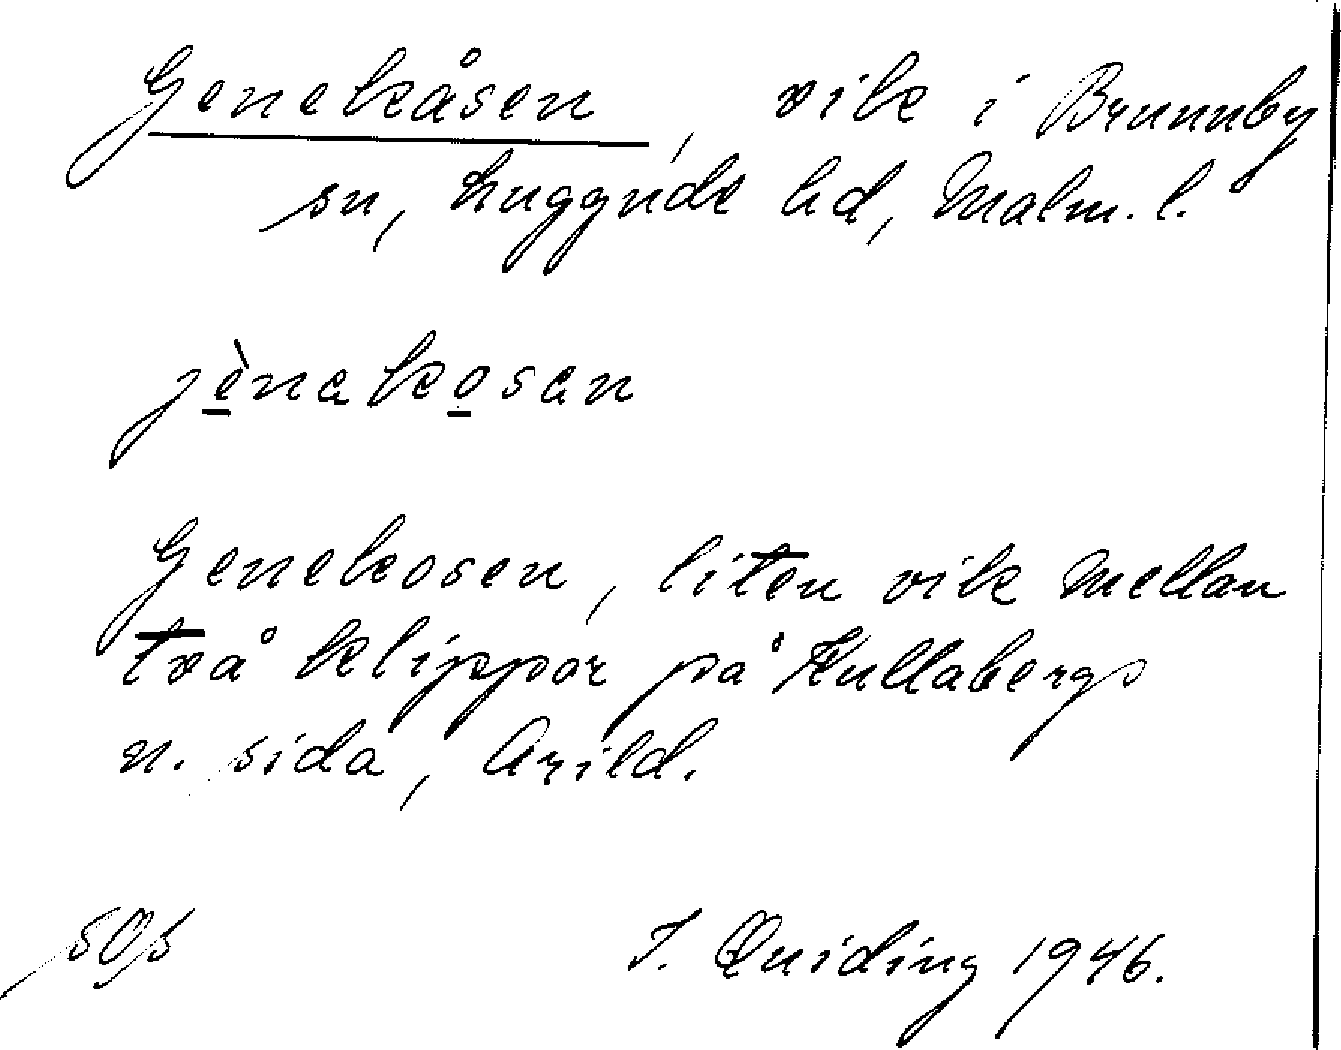 Genekåsen, vik i Brunnby
sn, Luggude hd, Malm. l.
jènekosen
Genekosen, liten vik mellan
två klippor på Kullabergs
n. sida, Arild.
I. Quiding 1946.